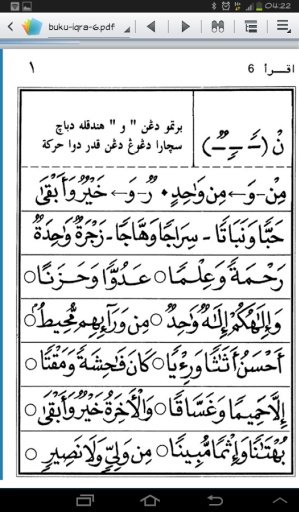 04:22
buku-iqra-6.pdf
١
اقرأ 6
نْ (ـًـ ـٍـ ـٌـ)
برتمو دڠن " و " هندقله دباچ
سچارا دڠوڠ دڠن قدر دوا حركة
مِنْ - وَ ← مِن وَاحِدٍ • رٌ - وَ ← خَيْرٌ وَأَبْقَىٰ
حَبًّا وَنَبَاتًا - سِرَاجًا وَهَّاجًا - زَجْرَةٌ وَاحِدَةٌ
رَحْمَةً وَعِلْمًا ○ عَدُوًّا وَحَزَنًا ○
وَإِلَٰهُكُمْ إِلَٰهٌ وَاحِدٌ ○ مِن وَرَآءِهِم مُّحِيطٌ ○
أَحْسَنُ أَثَاثًا وَرِءْيًا ○ كَانَ فَاحِشَةً وَمَقْتًا ○
إِلَّا حَمِيمًا وَغَسَّاقًا ○ وَالْأَخِرَةُ خَيْرٌ وَأَبْقَىٰ ○
بُهْتَانًا وَإِثْمًا مُّبِينًا ○ مِن وَلِيٍّ وَلَا نَصِيرٍ ○